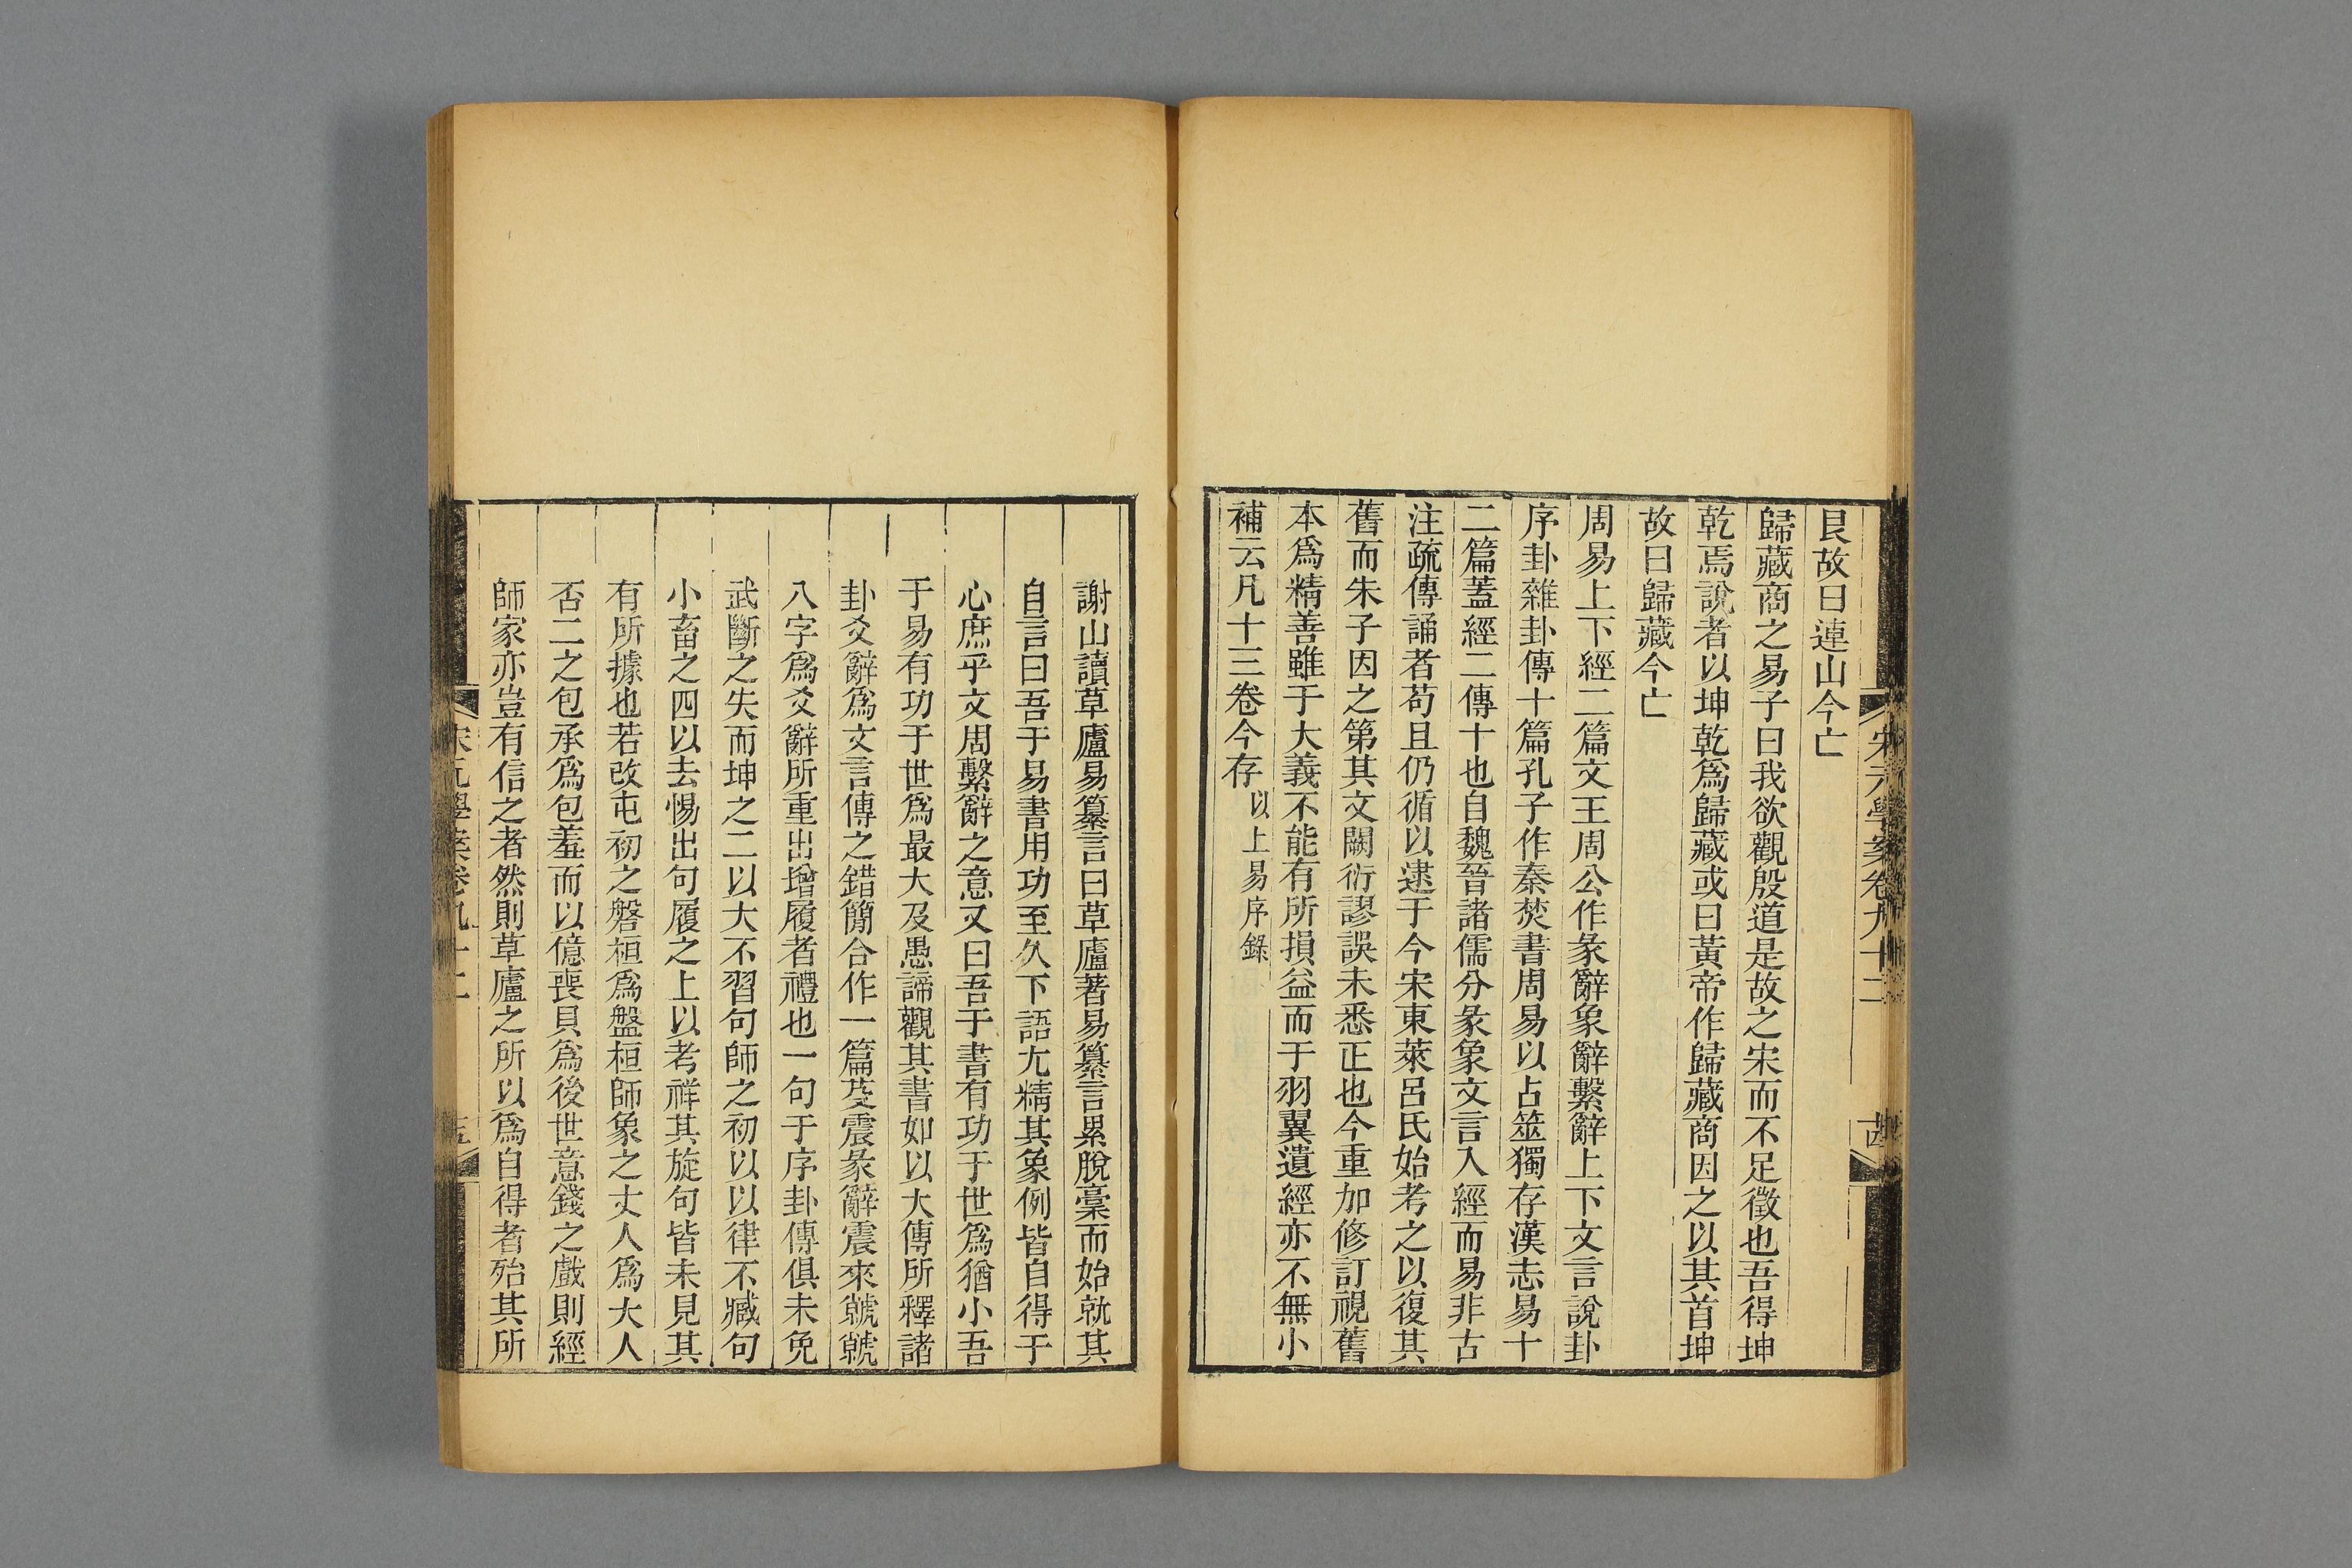 宋元學案卷九十二
艮故曰連山今亡
歸藏商之易子曰我欲觀殷道是故之宋而不足徵也吾得坤
乾焉說者以坤乾爲歸藏或曰黃帝作歸藏商因之以其首坤
故曰歸藏今亡
周易上下經二篇文王周公作彖辭象辭繫辭上下文言說卦
序卦雜卦傳十篇孔子作秦焚書周易以占筮獨存漢志易十
二篇蓋經二傳十也自魏晉諸儒分彖象文言入經而易非古
注疏傳誦者苟且仍循以逮于今宋東萊呂氏始考之以復其
舊而朱子因之第其文闕衍謬誤未悉正也今重加修訂視舊
本爲精善雖于大義不能有所損益而于羽翼遺經亦不無小
補云凡十三卷今存以上易序錄
謝山讀草廬易纂言曰草廬著易纂言累脫稾而始就其
自言曰吾于易書用功至久下語尤精其象例皆自得于
心庶乎文周繫辭之意又曰吾于書有功于世爲猶小吾
于易有功于世爲最大及愚諦觀其書如以大傳所釋諸
卦爻辭爲文言傳之錯簡合作一篇芟震彖辭震來虩虩
八字爲爻辭所重出增履者禮也一句于序卦傳俱未免
武斷之失而坤之二以大不習句師之初以以律不臧句
小畜之四以去惕出句履之上以考祥其旋句皆未見其
有所據也若改屯初之磐桓爲盤桓師象之丈人爲大人
否二之包承爲包羞而以億喪貝爲後世意錢之戲則經
師家亦豈有信之者然則草廬之所以爲自得者殆其所
宋元學案卷九十二